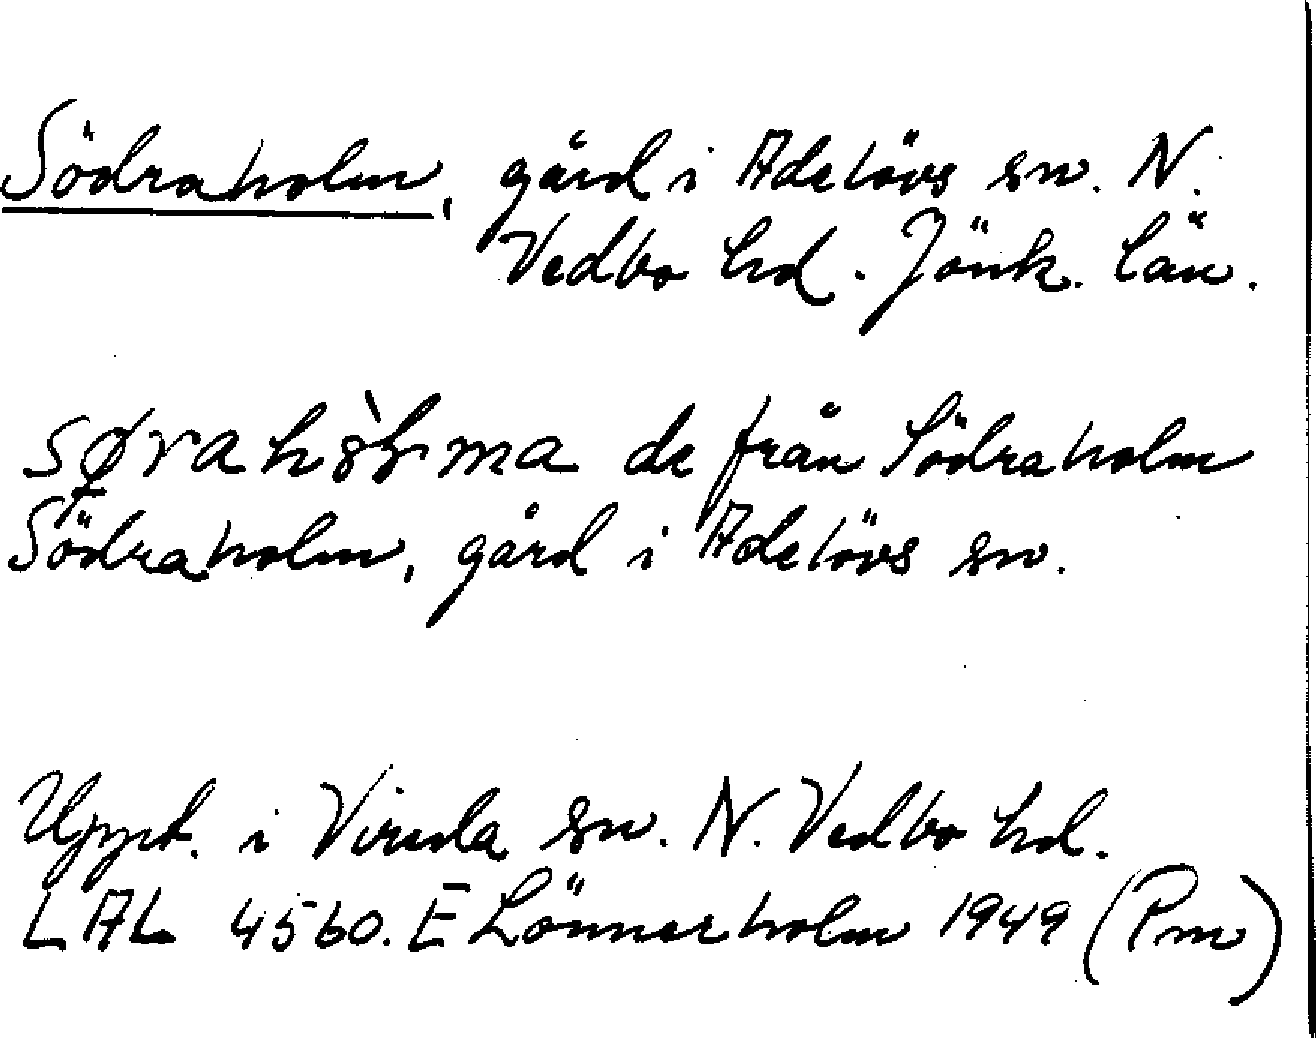 Södraholm, gård i Adelövs sn. N.
Vedbo hd. Jönk. län.
de från Södraholm
Södraholm, gård i Adelövs sn.
Uppt. i Vireda sn. N. Vedbo hd.
LAL 4560. E Lönnerholm 1949 (Pm)